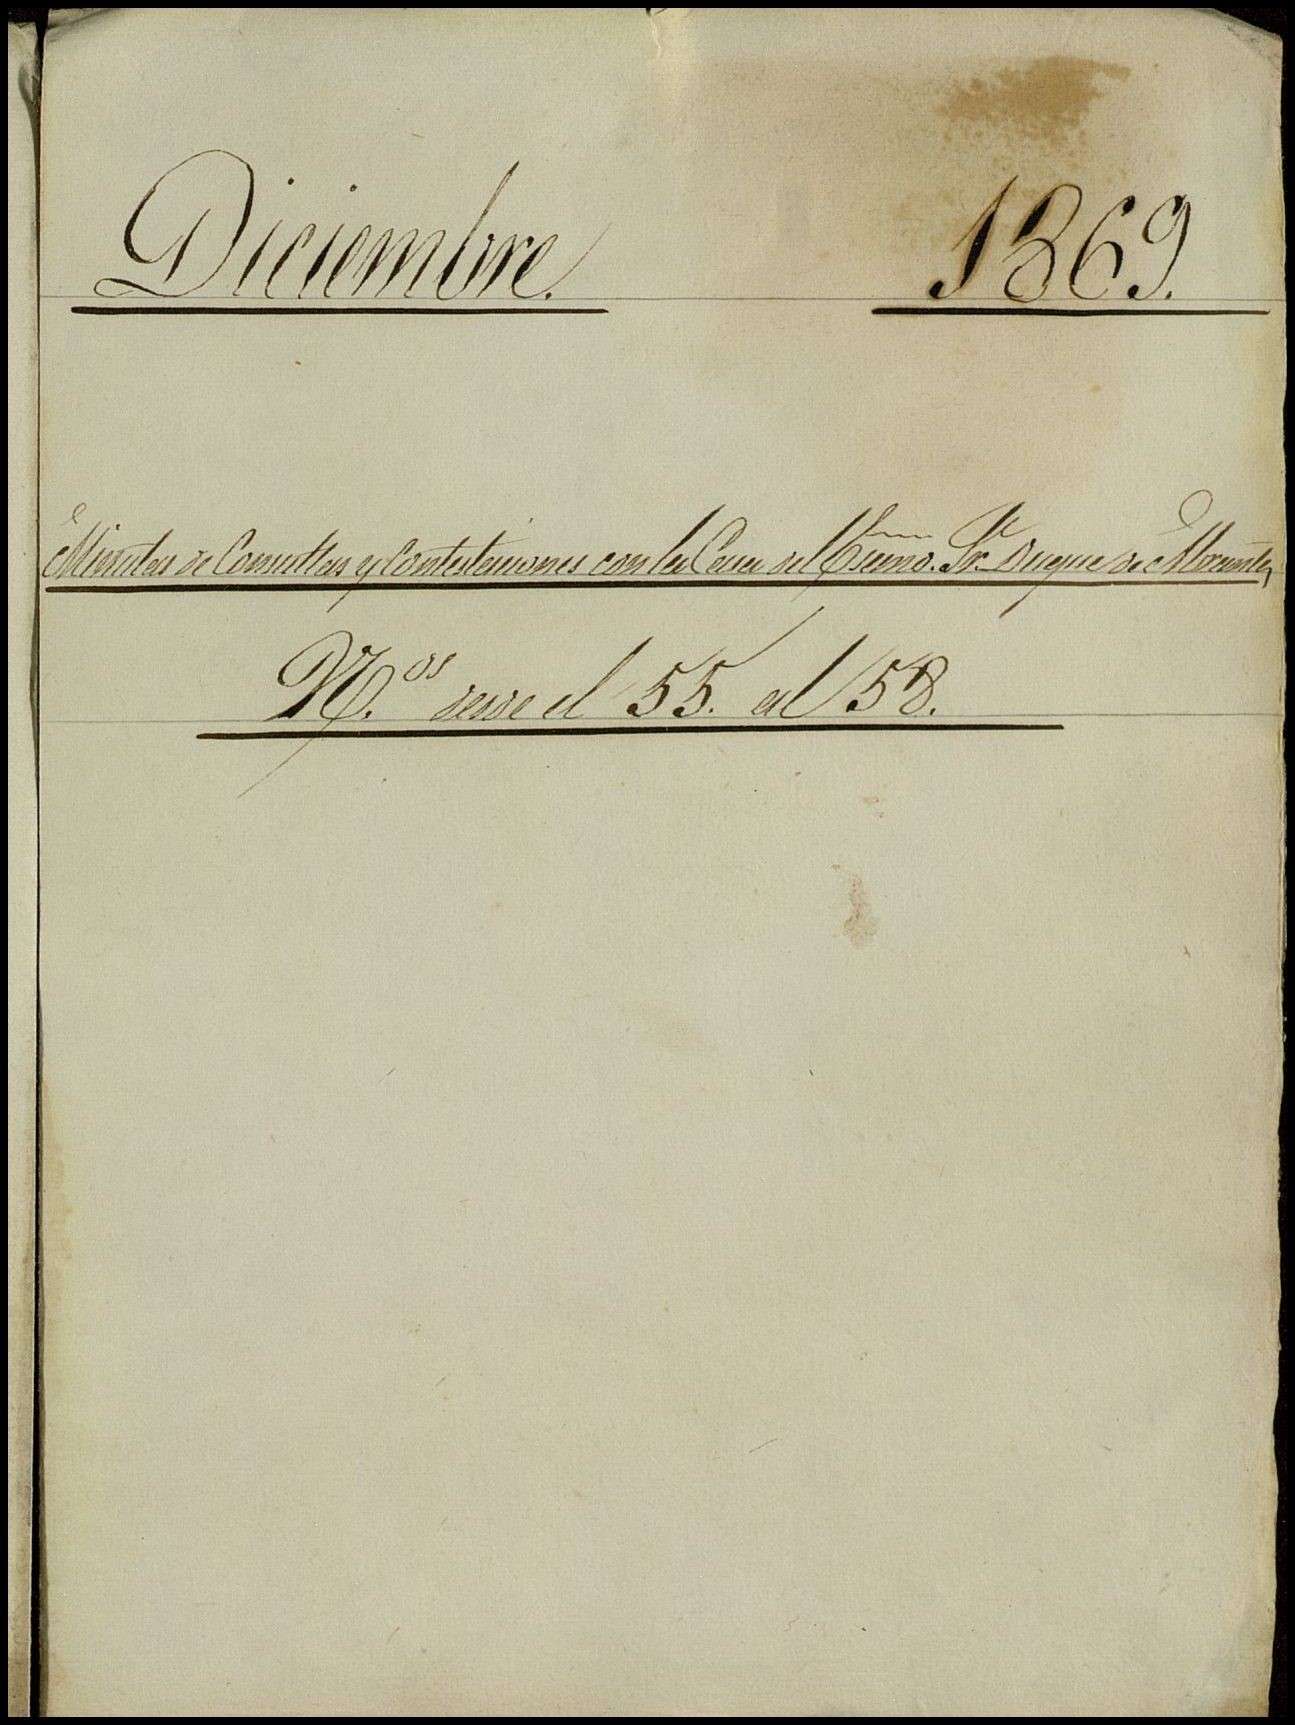 Diciembre. 1869.
Minutas de Consultas y Contestaciones con la Casa del Excmo. Sr. Duque de
N.os desde el 55. al 58.